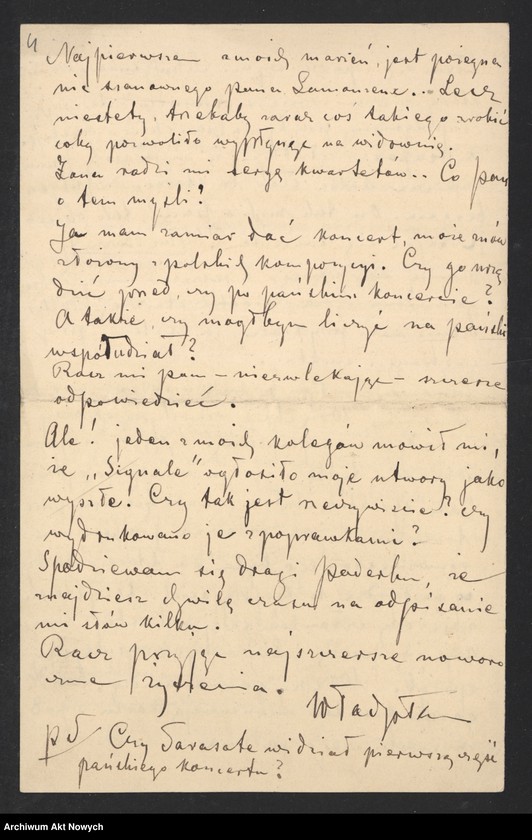 4
Najpierwszem z moich marzeń, jest pożegna
nie szanownego pana Lamoureux.. Lecz
niestety, trzebaby zaraz coś takiego zrobić
coby pozwoliło wypłynąć na widownię.
Żona radzi mi serję kwartetów.. Co pan
o tem myśli?
Ja mam zamiar dać koncert, może znów
złożony z polskich kompozycyi. Czy go urzą
dzić przed, czy po pańskim koncercie?
A także, czy mógłbym liczyć na pański
współudział?
Racz mi pan – niezwlekając – szczerze
odpowiedzieć.
Ale! jeden z moich kolegów mówił mi,
że „Signale" ogłosiło moje utwory jako
wyszłe. Czy tak jest rzeczywiście? czy
wydrukowano je z poprawkami?
Spodziewam się drogi Paderku, że
znajdziesz chwilę czasu na odpisanie
mi słów kilku.
Racz przyjąć najszczersze noworo
czne życzenia.
Władysław
PS Czy Sarasate widział pierwszą część
pańskiego koncertu?
Archiwum Akt Nowych